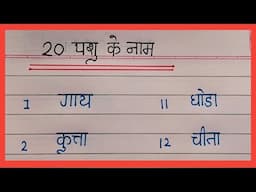 20 पशु के नाम
1 गाय 11 घोडा
2 कुत्ता 12 चीता